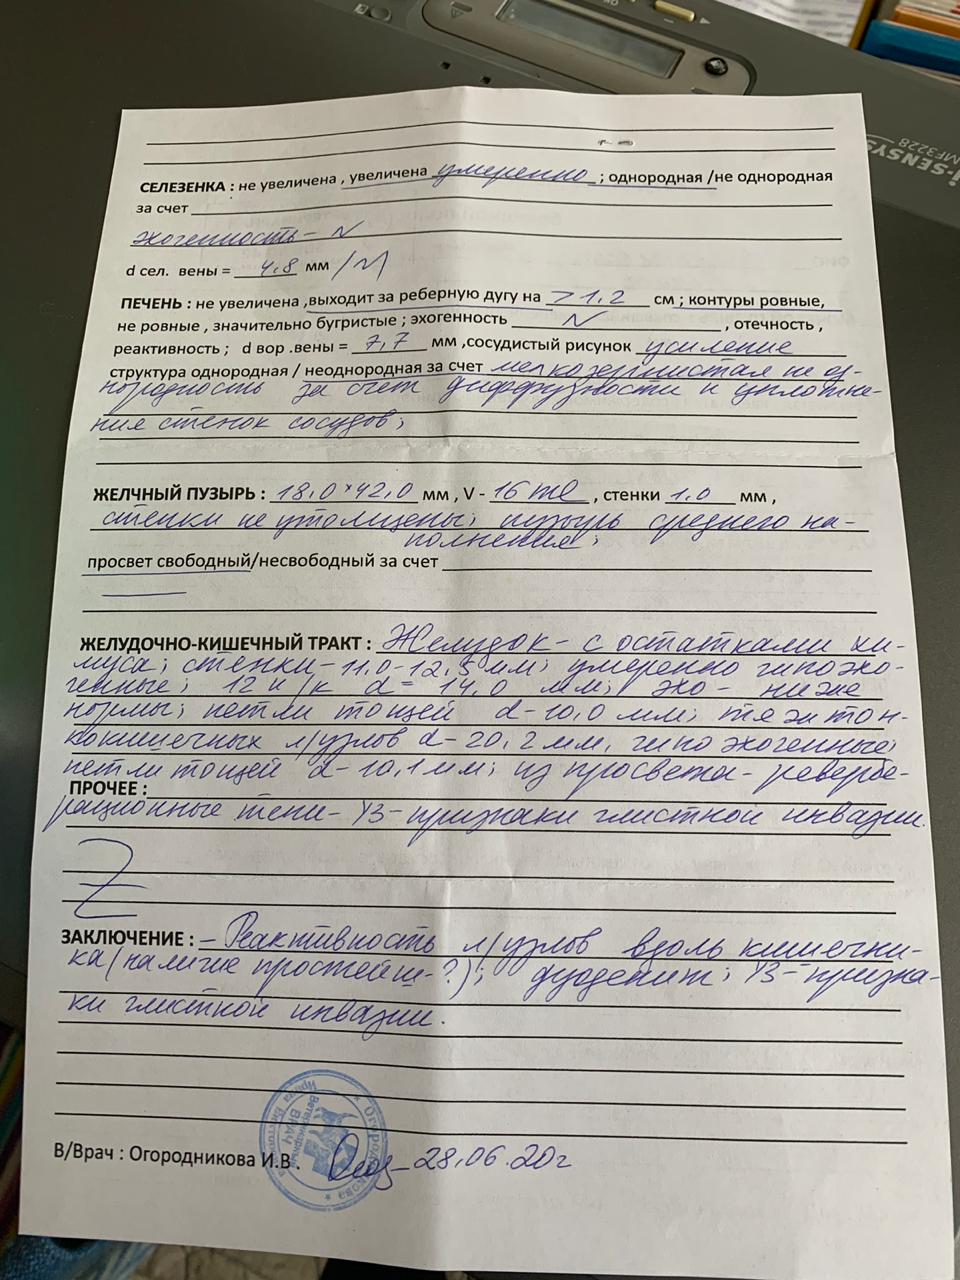 СЕЛЕЗЕНКА : не увеличена , увеличена умеренно ; однородная /не однородная
за счет
эхогенность - N
d сел. вены = 4,8 мм /N/
ПЕЧЕНЬ : не увеличена ,выходит за реберную дугу на > 1,2 см ; контуры ровные,
не ровные , значительно бугристые ; эхогенность N , отечность ,
реактивность ; d вор .вены = 7,7 мм ,сосудистый рисунок усиление
структура однородная / неоднородная за счет мелкозернистая не од-
нородность за счет диффузности и уплотне-
ния стенок сосудов;
ЖЕЛЧНЫЙ ПУЗЫРЬ : 18,0 × 42,0 мм , V - 16 ml , стенки 1,0 мм ,
стенки не утолщены; пузырь среднего на-
полнения;
просвет свободный/несвободный за счет
ЖЕЛУДОЧНО-КИШЕЧНЫЙ ТРАКТ : Желудок - с остатками хи-
муса; стенки - 11,0-12,5 мм; умеренно гипоэхо-
генные; 12 п/к d = 14,0 мм; эхо - ниже
нормы; петли тощей d - 10,0 мм; тяжи тон-
кокишечных л/узлов d - 20,2 мм, гипоэхогенные;
петли тощей d - 10,1 мм; из просвета - ревербе-
ПРОЧЕЕ :
рационные тени - УЗ - признаки глистной инвазии.
Z
ЗАКЛЮЧЕНИЕ : - Реактивность л/узлов вдоль кишечни-
ка (наличие простейш - ?); дуоденит; УЗ - призна-
ки глистной инвазии.
В/Врач : Огородникова И.В . 28.06.20г
Ветеринарный
ВРАЧ
i-SENSYS
MF3228